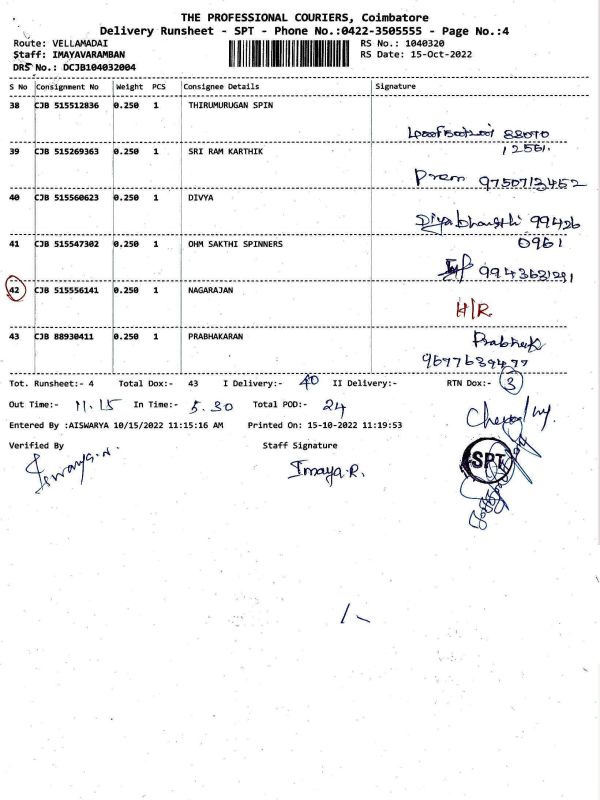 THE PROFESSIONAL COURIERS, Coimbatore
Delivery Runsheet - SPT - Phone No.:0422-3505555 - Page No.:4
Route: VELLAMADAI RS No.: 1040320
Staff: IMAYAVARAMBAN RS Date: 15-Oct-2022
DRS No.: DCJB104032004
S No Consignment No Weight PCS Consignee Details Signature
38 CJB 515512836 0.250 1 THIRUMURUGAN SPIN
88070
12561.
39 CJB 515269363 0.250 1 SRI RAM KARTHIK
Prem 9750713452
40 CJB 515560623 0.250 1 DIVYA
Divyabharathi 99426
0961
41 CJB 515547302 0.250 1 OHM SAKTHI SPINNERS
9943631291
42 CJB 515556141 0.250 1 NAGARAJAN
H/R
43 CJB 88930411 0.250 1 PRABHAKARAN
Prabhak
9677639477
Tot. Runsheet:- 4 Total Dox:- 43 I Delivery:- 40 II Delivery:- RTN Dox:- 3
Out Time:- 11.15 In Time:- 5.30 Total POD:- 24
Entered By :AISWARYA 10/15/2022 11:15:16 AM Printed On: 15-10-2022 11:19:53
Verified By Staff Signature
Iswarya.N. Imaya.R.
SPT